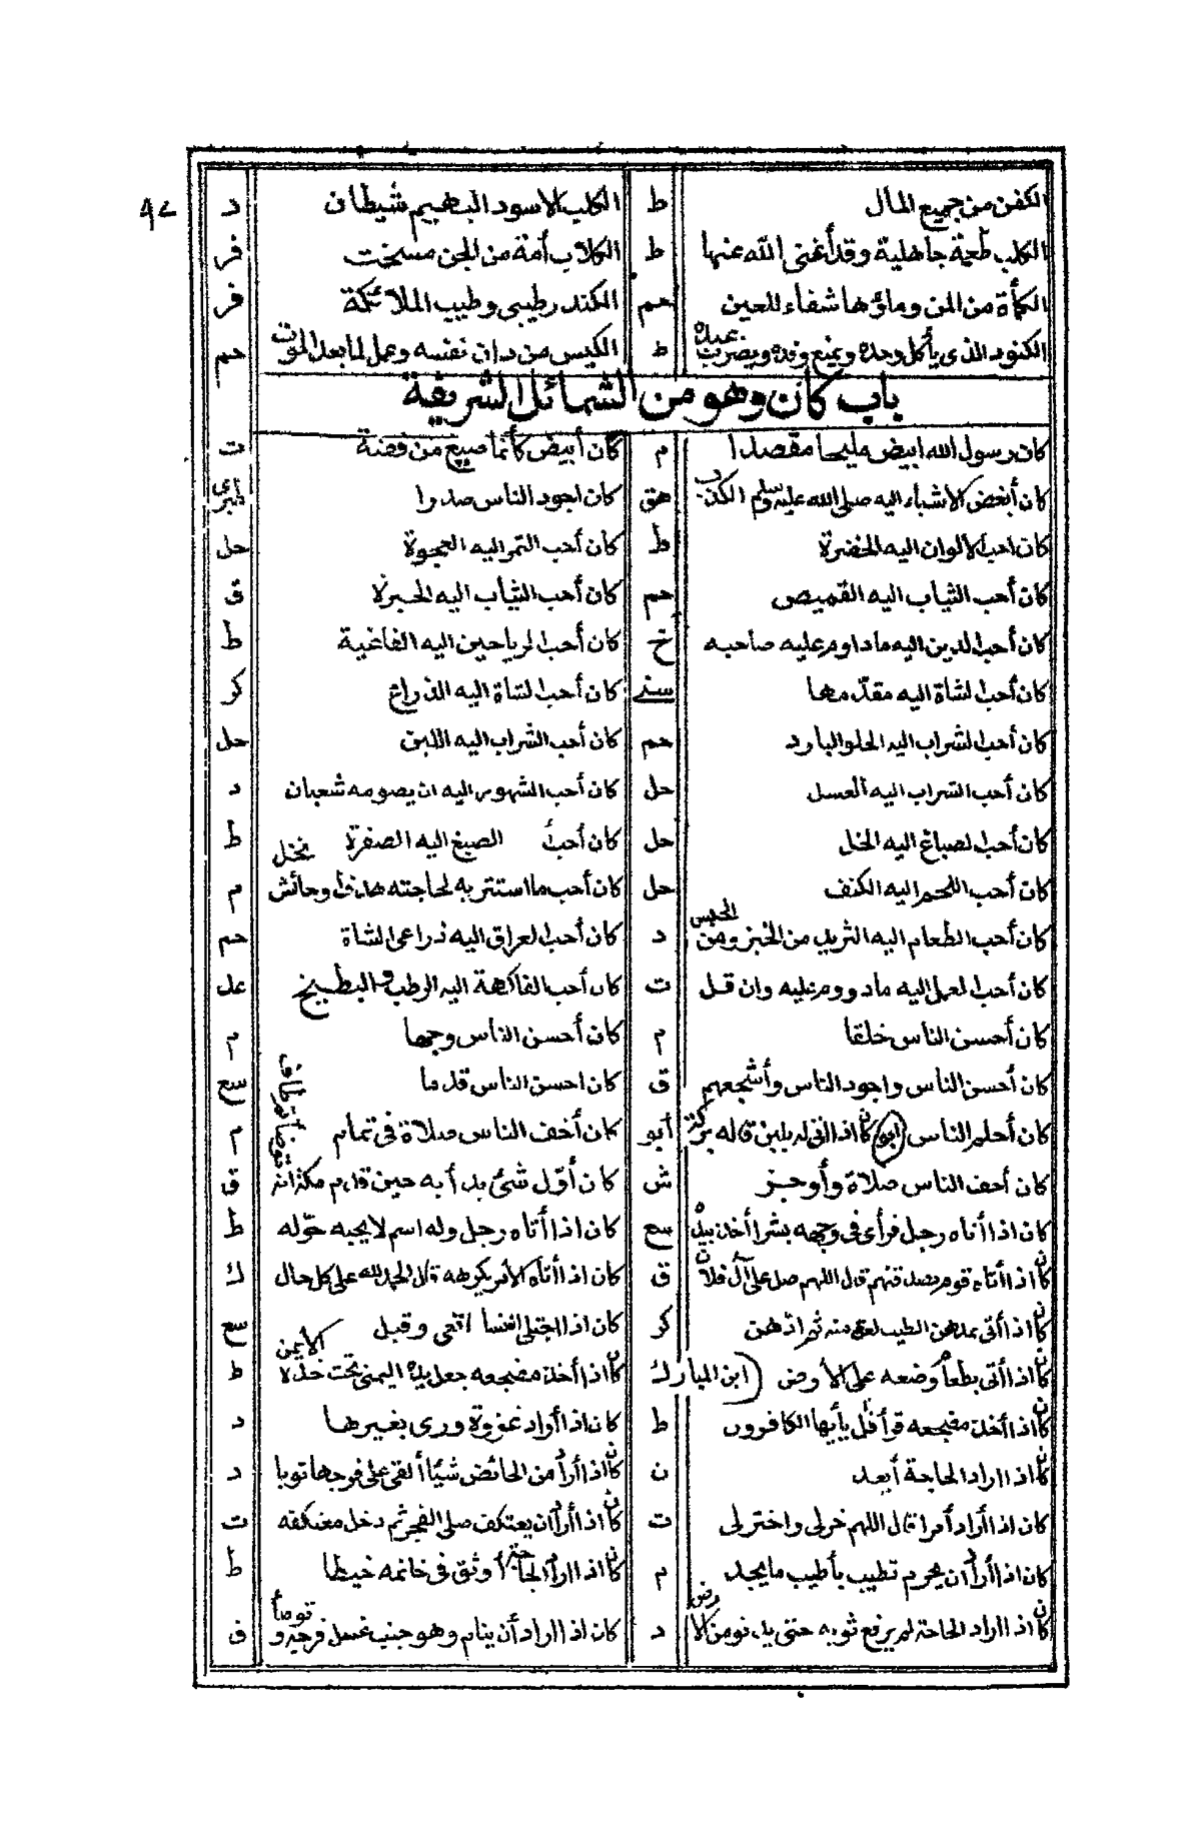 ٩٧
الكفن من جميع المال ط الكلب الاسود البهيم شيطان د
الكلب طعمة جاهلية وقد أغنى الله عنها ط الكلاب أمة من الجن مسخت فر
الكمأة من المن وماؤها شفاء للعين حم الكندر طيبى وطيب الملائكة فر
الكنود الذى يأكل وحده ويمنع رفده ويضرب عبده ط الكيس من دان نفسه وعمل لما بعد الموت حم
باب كان وهو من الشمائل الشريفة
كان رسول الله ابيض مليحا مقصدا م كان أبيض كأنما صيغ من فضة ت
كان أبغض الاشياء اليه صلى الله عليه وسلم الكذب هق كان اجود الناس صدرا
كان احب الالوان اليه الخضرة ط كان أحب التمر اليه العجوة حل
كان أحب الثياب اليه القميص حم كان أحب الثياب اليه الحبرة ق
كان أحب الدين اليه ما داوم عليه صاحبه خ كان أحب الرياحين اليه الفاغية ط
كان أحب الشاة اليه مقدمها سنى كان أحب الشاة اليه الذراع كر
كان أحب الشراب اليه الحلو البارد حم كان أحب الشراب اليه اللبن حل
كان أحب الشراب اليه العسل حل كان أحب الشهور اليه ان يصومه شعبان د
كان أحب الصباغ اليه الخل حل كان أحب الصبغ اليه الصفرة ط
كان أحب اللحم اليه الكتف حل كان أحب ما استتر به لحاجته هدفا وحائش نخل م
كان أحب الطعام اليه الثريد من الخبز ومن الحيس د كان أحب العراق اليه ذراعى الشاة حم
كان أحب العمل اليه ما دووم عليه وان قل ت كان أحب الفاكهة اليه الرطب والبطيخ عد
كان أحسن الناس خلقا م كان أحسن الناس وجها م
كان أحسن الناس واجود الناس وأشجعهم ق كان احسن الناس قدما سع
كان أحلم الناس أبو كان أخف الناس صلاة فى تمام م
كان أخف الناس صلاة وأوجز ش كان أول شئ بدأ به حين قدم مكة انه توضأ ثم طاف ق
كان اذا أتاه رجل فرأى فى وجهه بشرا أخذ بيده سع كان اذا أتاه رجل وله اسم لا يحبه حوله ط
كان اذا أتاه قوم بصدقتهم قال اللهم صل على آل فلان ق كان اذا أتاه الامر يكرهه قال الحمد لله على كل حال ك
كان اذا أتى بمدهن الطيب لعق منه ثم ادهن كر كان اذا اجتلى النسا اقعى وقبل سع
كان اذا أتى بطعام وضعه على الأرض (ابن المبارك كان اذا أخذ مضجعه جعل يده اليمنى تحت خده الأيمن ط
كان اذا أخذ مضجعه قرأ قل يأيها الكافرون ط كان اذا أراد غزوة ورى بغيرها د
كان اذا اراد الحاجة أبعد ن كان اذا أراد من الحائض شيئا ألقى على فرجها ثوبا د
كان اذا أراد أمرا قال اللهم خر لى واختر لى ت كان اذا أراد أن يعتكف صلى الفجر ثم دخل معتكفه ت
كان اذا أراد أن يحرم تطيب بأطيب ما يجد م كان اذا اراد الحاجة أوثق فى خاتمه خيطا ط
كان اذا اراد الحاجة لم يرفع ثوبه حتى يدنو من الارض د كان اذا اراد أن ينام وهو جنب غسل فرجه وتوضأ ق